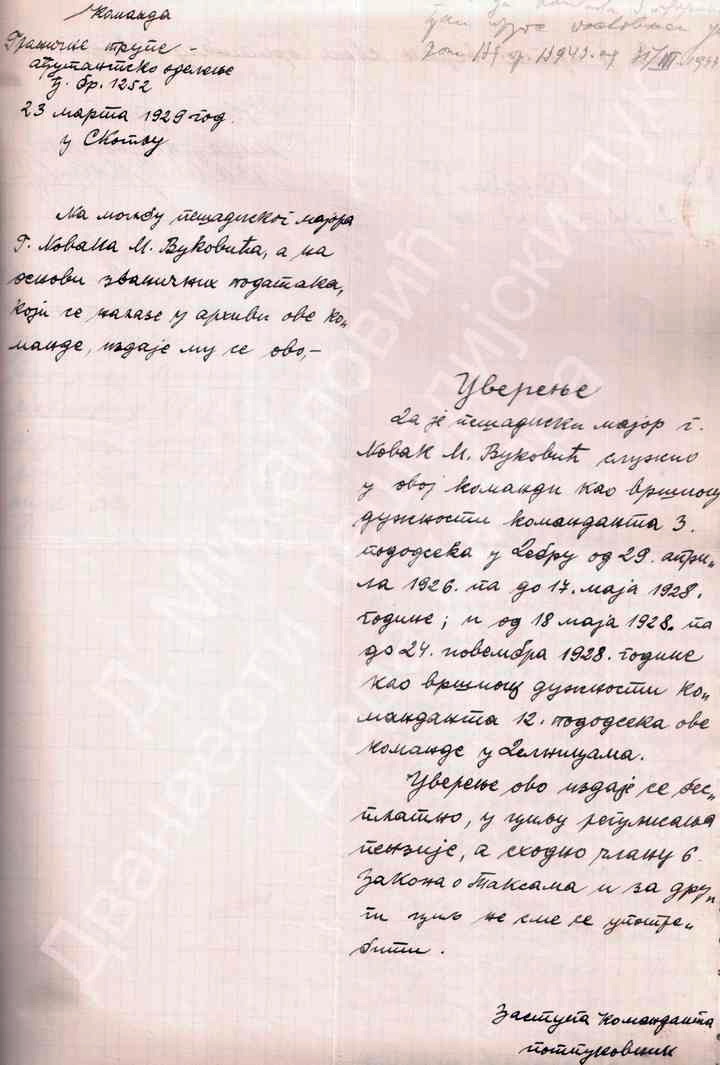 Команда
Граничне трупе -
ађутантско одељење
Ђ. бр. 1252
23 марта 1929 год.
у Скопљу
На молбу пешадиског мајора
Г. Новака М. Вуковића, а на
основи званичних података,
који се налазе у архиви ове ко„
манде, издаје му се ово,-
Уверење
Да је пешадиски мајор г.
Новак М. Вуковић служио
у овој команди као вршиоц
дужности команданта 3.
пододсека у Дебру од 29. апри„
ла 1926. па до 17. маја 1928.
године; и од 18 маја 1928. па
до 24. новембра 1928. године
као вршиоц дужности ко„
манданта 12. пододсека ове
команде у Делницама.
Уверење ово издаје се бес„
платно, у циљу регулисања
пензије, а сходно члану 6.
Закона о Таксама и за дру„
ги циљ не сме се употре„
бити.
Заступа Команданта
потпуковник
Д. Михаиловић
Дванаести пешадијски пук